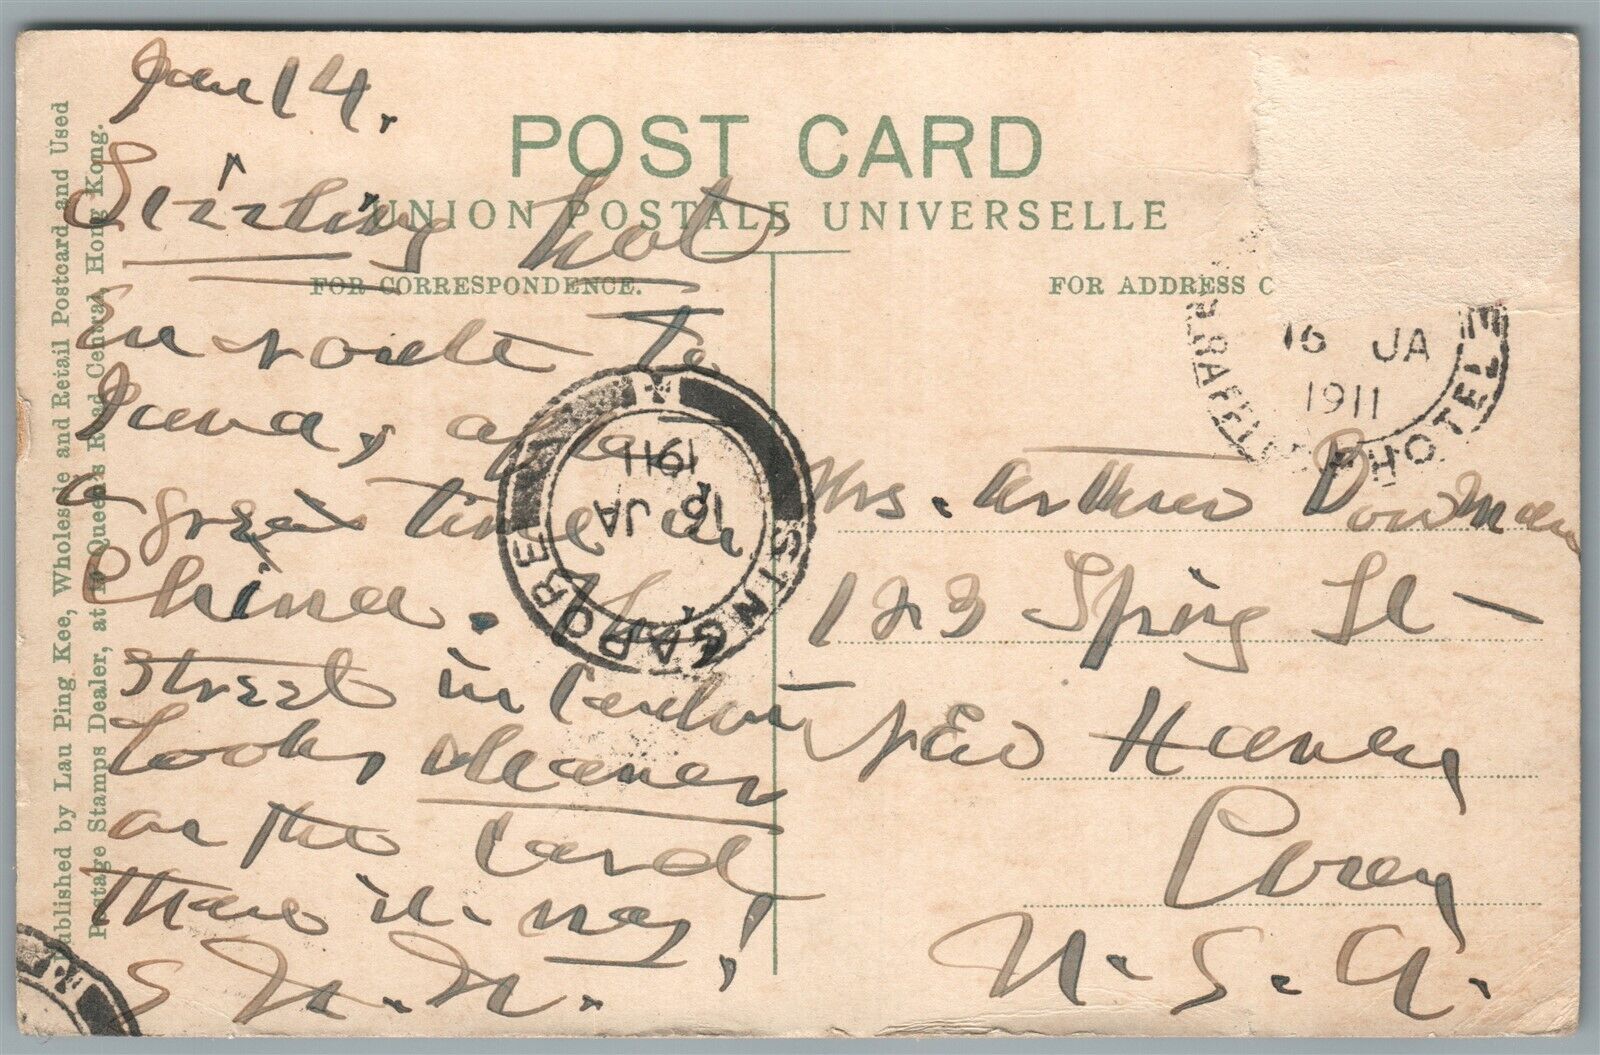 Jan 14.
Sizzling hot
POST CARD
UNION POSTALE UNIVERSELLE
FOR CORRESPONDENCE.
FOR ADDRESS
En route to
Java, after
a great time in
China. The
street in Canton
looks cleaner
on the card
than it may!
S.
Mrs. Arthur Bowman
123 Spring St
New Haven
U.S.A.
16 JA
1911
RAFFLES HOTEL
SINGAPORE
16 JA
1911
Published by Lau Ping Kee, Wholesale and Retail Postcard and Used
Postage Stamps Dealer, at Queen's Road Central, Hong Kong.